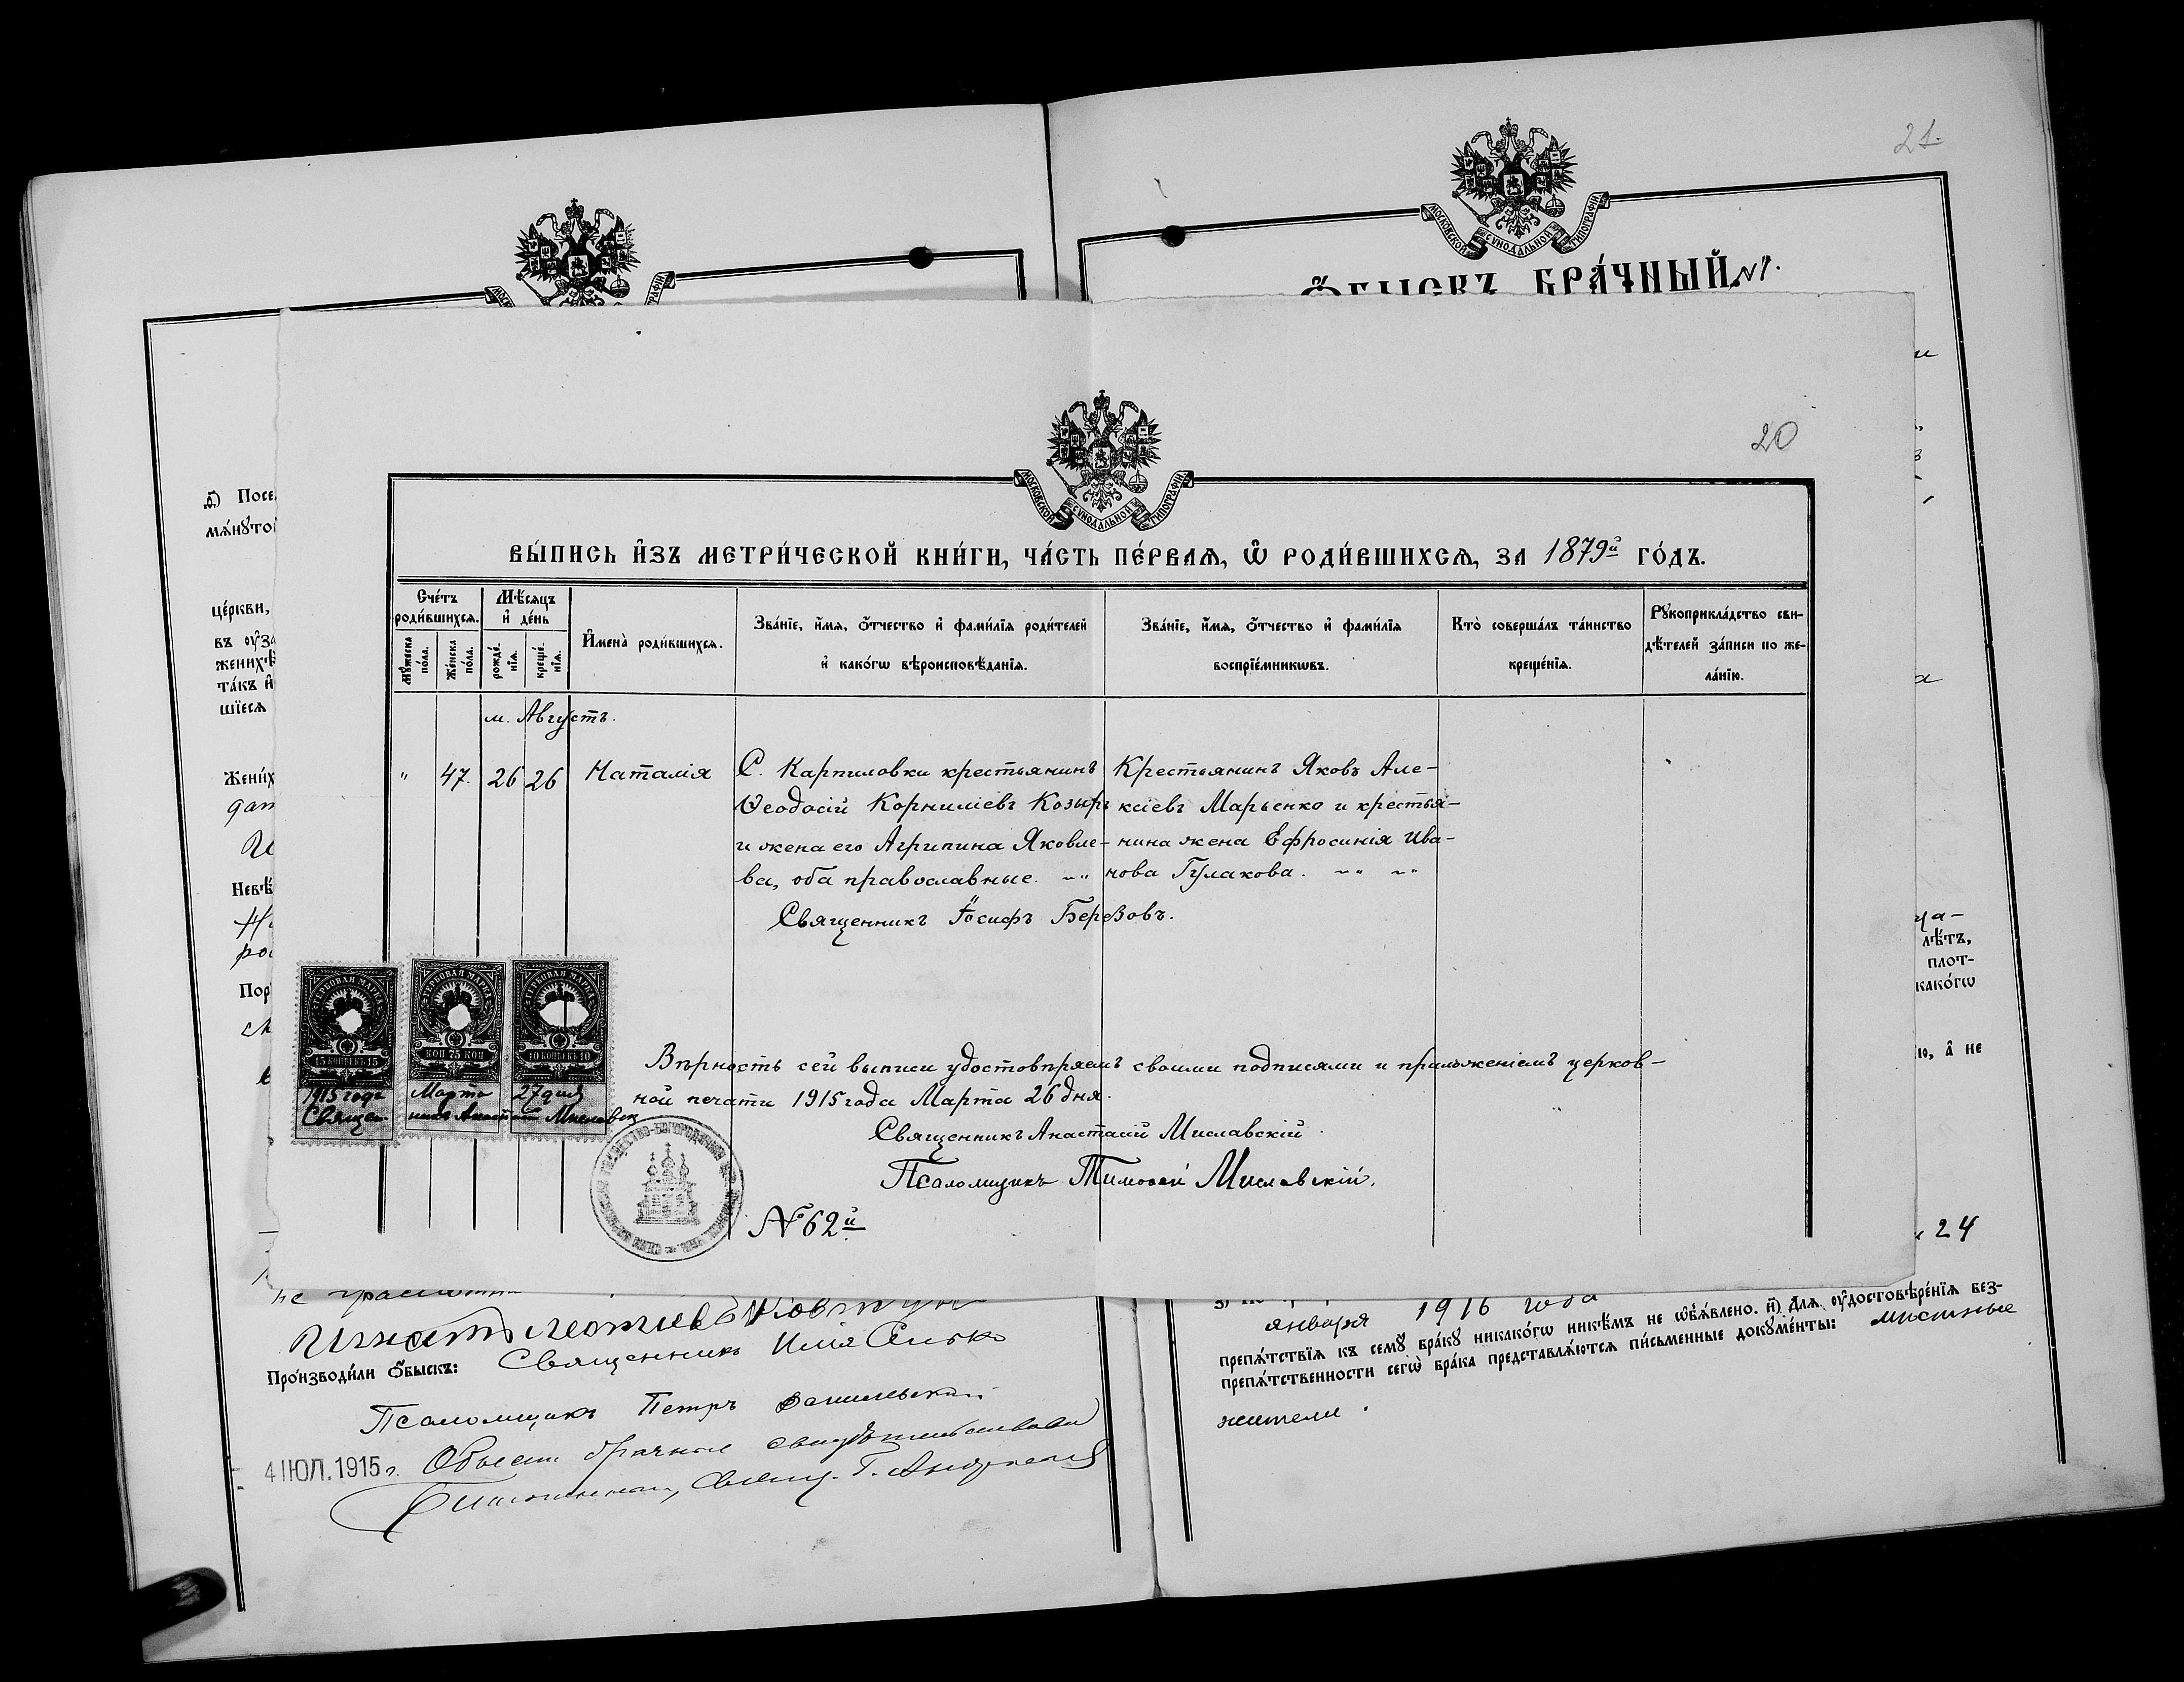 21.
МОСКОВСКОЙ СУНОДАЛЬНОЙ ТИПОГРАФІИ
БРА́ЧНЫЙ №1.
20
МОСКОВСКОЙ СУНОДАЛЬНОЙ ТИПОГРАФІИ
ВЫ́ПИСЬ И҆ЗЪ МЕТРИ́ЧЕСКОЙ КНИ́ГИ, ЧА́СТЬ ПЕ́РВАЯ, Ѡ҆ РОДИ́ВШИХСЯ, ЗА 1879й ГО́ДЪ.
Сче́тъ роди́вшихся.
Мꙋжеска по́ла.
Же́нска по́ла.
Мѣ́сяцъ и҆ де́нь
рожде́нїя.
креще́нїя.
И҆мена̀ роди́вшихся.
Зва́нїе, и҆́мя, ѻ҆́тчество и҆ фами́лїя роди́телей
и҆ како́гѡ вѣроисповѣ́данїя.
Зва́нїе, и҆́мя, ѻ҆́тчество и҆ фами́лїя
воспрїе́мникѡвъ.
Кто̀ соверша́лъ та́инство
креще́нїя.
Рꙋкоприкла́дство сви-
дѣ́телей за́писи по же-
ла́нїю.
м. Августъ.
" 47. 26 26 Наталія
С. Карпиловки крестьянинъ
Ѳеодосій Корниліевъ Козырь
и жена его Агрипина Яковле-
ва, оба православные.
Крестьянинъ Яковъ Але-
ксіевъ Марьенко и крестья-
нина жена Ефросинія Ива-
нова Гулакова.
Священникъ Іосифъ Березовъ.
ГЕРБОВАЯ МАРКА
15 КОПѢЕКЪ 15
ГЕРБОВАЯ МАРКА
КОП 75 КОП
ГЕРБОВАЯ МАРКА
10 КОПѢЕКЪ 10
1915 года Марта 27 дня
Священникъ Анастасій Миславск
Вѣрность сей выписи удостовѣряемъ своими подписями и приложеніемъ церков-
ной печати 1915 года Марта 26 дня.
Священникъ Анастасій Миславскій.
Псаломщикъ Тимоѳей Миславскій.
№ 62й
Посе
мѧ́нꙋто
це́ркви,
шїеся
Жени́х
Невѣ́
Пор
лѣ́тъ,
плот-
како́гѡ
а҆ не
24
Произво́дили ѻ҆́быскъ: Священникъ Илія
Псаломщикъ Петръ
4 ІЮЛ. 1915 г.
января 1916 года
препѧ́тствїя къ семꙋ̀ бра́кꙋ никако́гѡ никѣ́мъ не ѡ҆бъя́влено. и҃) Для ᲂу҆достовѣре́нїя без-
препѧ́тственности сегѡ̀ бра́ка представлѧ́ются пи́сьменные докꙋме́нты: мѣстные
жители.